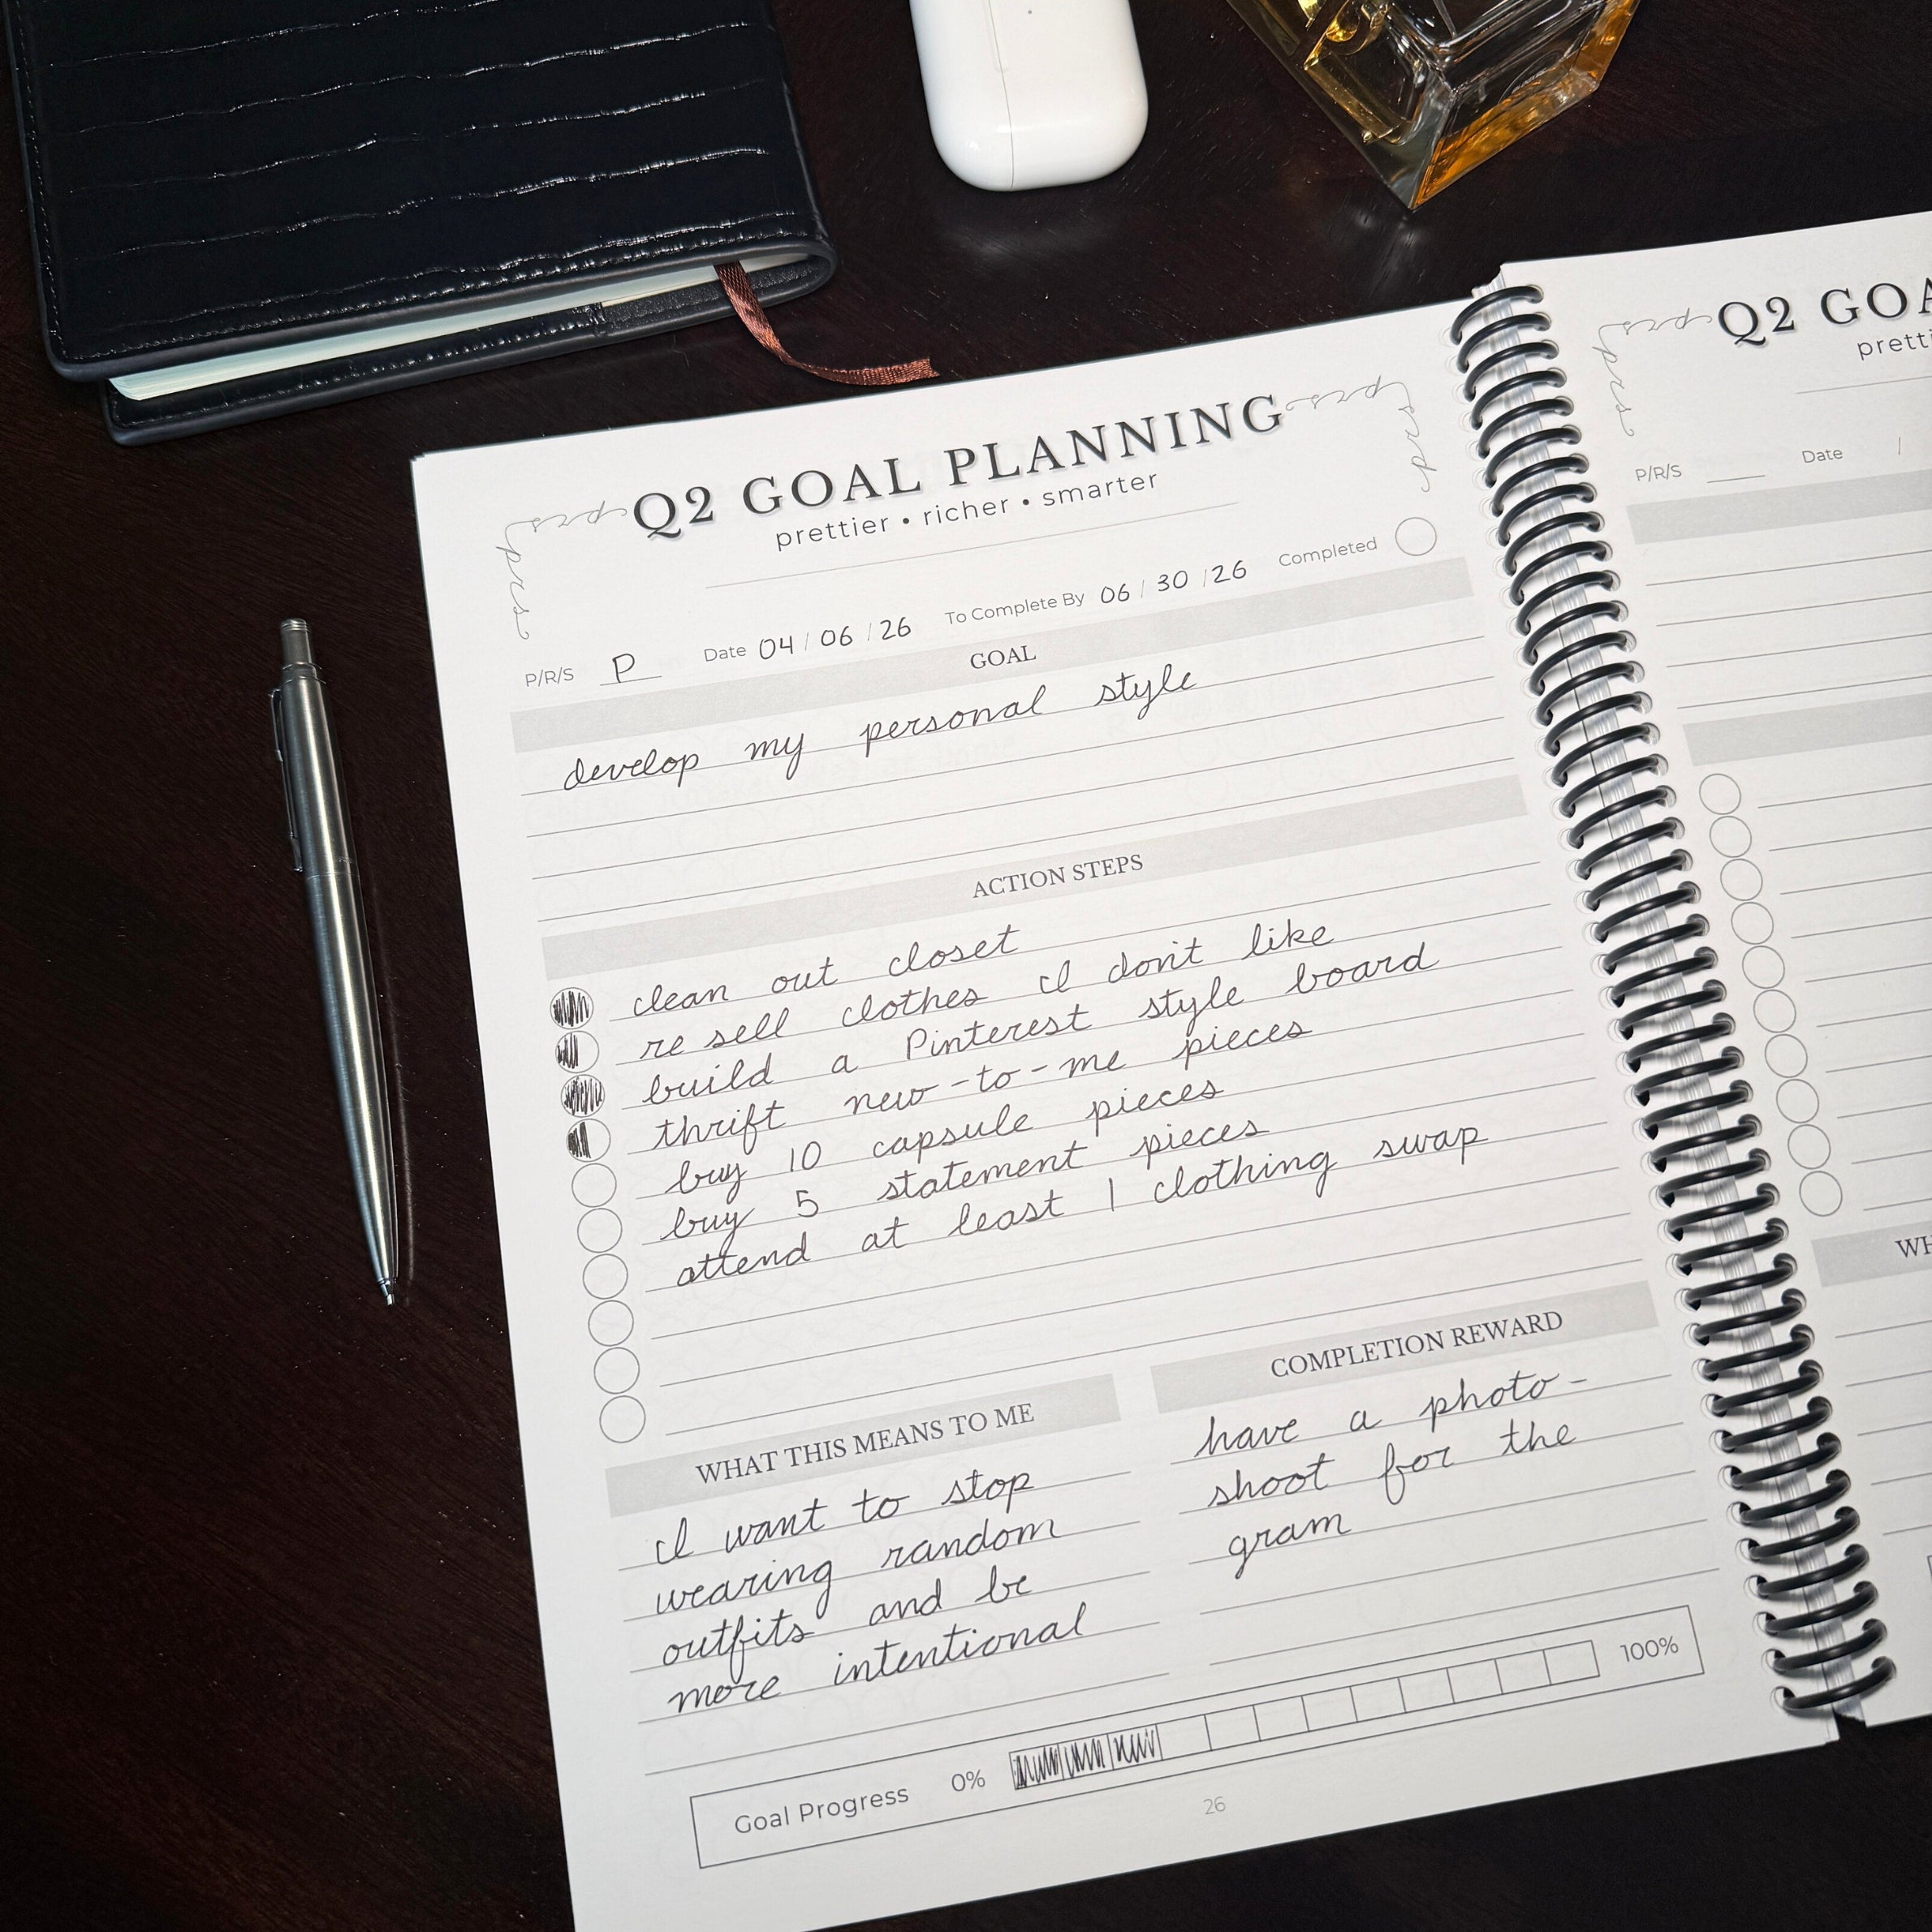 Q2 GOAL PLANNING
prettier • richer • smarter
P/R/S P Date 04 / 06 / 26 To Complete By 06 / 30 / 26 Completed
GOAL
develop my personal style
ACTION STEPS
clean out closet
re sell clothes I don't like
build a Pinterest style board
thrift new-to-me pieces
buy 10 capsule pieces
buy 5 statement pieces
attend at least 1 clothing swap
WHAT THIS MEANS TO ME
I want to stop
wearing random
outfits and be
more intentional
COMPLETION REWARD
have a photo-
shoot for the
gram
Goal Progress 0% 100%
26
prs prs
prs prs
Q2 GOA
pretti
prs prs
P/R/S Date /
WH